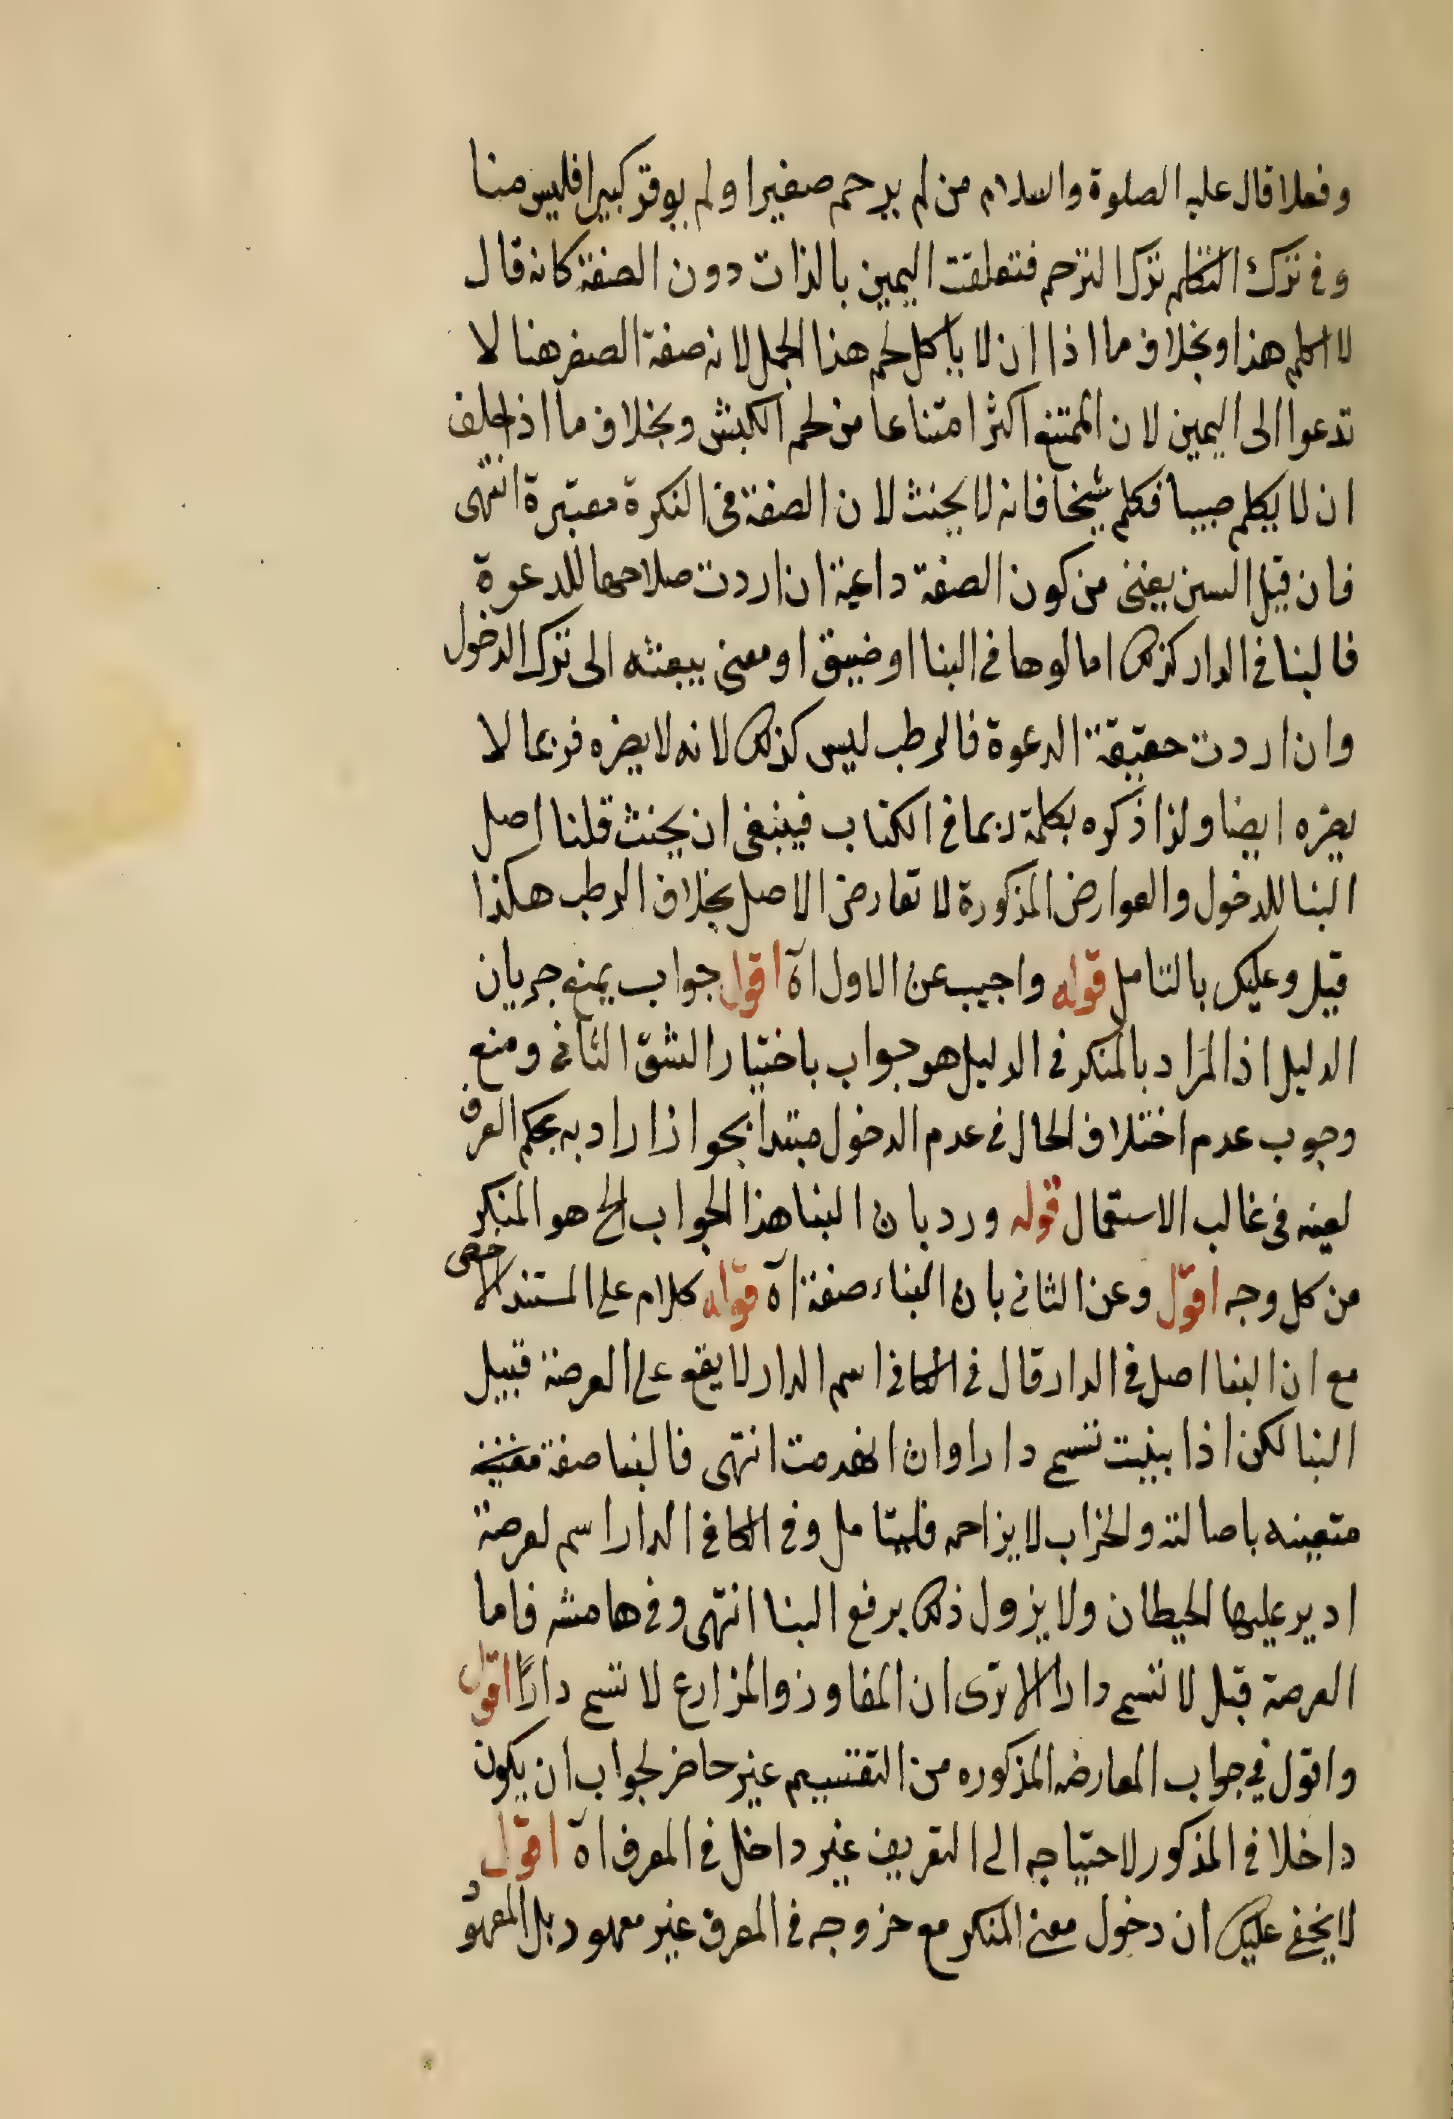 وفعلا قال عليه الصلوة والسلام من لم يرحم صغيرا ولم يوقر كبيرا فليس منا
وفي ترك التكلم ترك الترحم فتعلقت اليمين بالذات دون الصفة كانه قال
لا اكلم هذا وبخلاف ما اذا ان لا ياكل لحم هذا الجمل لانه صفة الصغر هنا لا
تدعوا الى اليمين لان الممتنع اكثر امتناعا من لحم الكبش وبخلاف ما اذا حلف
ان لا يكلم صبيا فكلم شيخا فانه لا يحنث لان الصفة في النكرة معتبرة انتهى
فان قيل السن يعنى من كون الصفة داعية ان اردت صلاحها للدعوة
فالبنا في الدار كذلك اما لوها في البنا او ضيق او معنى يبعثه الى ترك الدخول
وان اردت حقيقة الدعوة فالرطب ليس كذلك لانه لا يضره فربما لا
يضره ايضا ولذا ذكره بكلمة ربما في الكتاب فينبغى ان يحنث قلنا اصل
البنا للدخول والعوارض المذكورة لا تعارض الاصل بخلاف الرطب هكذا
قيل وعليك بالتامل قوله واجيب عن الاول اه اقول جواب يمنع جريان
الدليل اذ المراد بالمنكر في الدليل هو جواب باختيار الشق الثاني ومنع
وجوب عدم اختلاف الحال في عدم الدخول مبتدا بجواز اراد به بحكم العرف
لعينه في غالب الاستعمال قوله ورد بان البنا هذا الجواب الخ هو المنكر
من كل وجه اقول وعن الثاني بان البناء صفة اه قوله كلام على المستند الاخص
مع ان البنا اصل في الدار قال في الكافي اسم الدار لا يقع على العرصة قبيل
البنا لكن اذا بنيت تسمى دارا وان انهدمت انتهى فالبنا صفة معينة
متعينه باصالته والخراب لا يزاحمه فليتامل وفي الكافي الدار اسم لعرصة
ادير عليها الحيطان ولا يزول ذلك برفع البنا انتهى وفي هامشه فاما
العرصة قبل لا تسمى دارا الا ترى ان المفاوز والمزارع لا تسمى دارًا اقول
واقول في جواب المعارضه المذكوره من التقسيم غير حاضر لجواب ان يكون
داخلا في المذكور لاحتياجه الى التعريف غير داخل في المعرف اه اقول
لا يخفى عليك ان دخول معنى المنكر مع خروجه في المعرف غير معهود بل المعهود